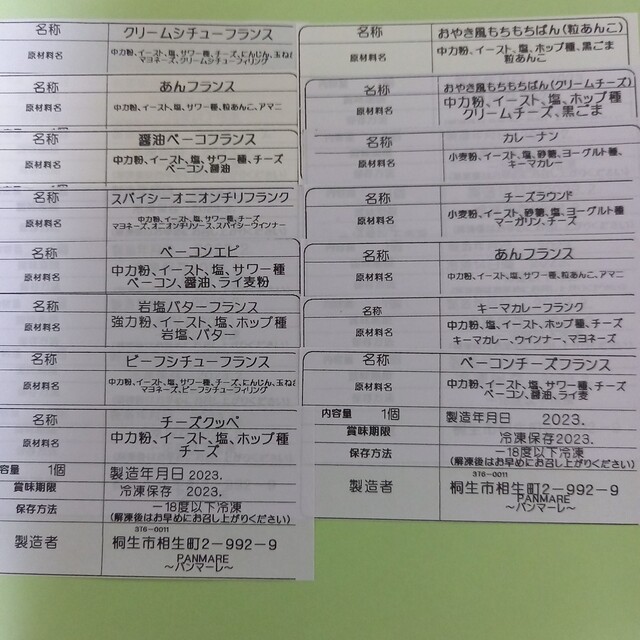 名称 クリームシチューフランス
原材料名 中力粉、イースト、塩、サワー種、チーズ、にんじん、玉ねぎ
マヨネーズ、クリームシチューフィリング
名称 あんフランス
原材料名 中力粉、イースト、塩、サワー種、粒あんこ、アマニ
名称 醤油ベーコフランス
原材料名 中力粉、イースト、塩、サワー種、チーズ
ベーコン、醤油
名称 スパイシーオニオンチリフランク
原材料名 中力粉、イースト、塩、サワー種、チーズ
マヨネーズ、オニオンチリソース、スパイシーウインナー
名称 ベーコンエピ
原材料名 中力粉、イースト、塩、サワー種
ベーコン、醤油、ライ麦粉
名称 岩塩バターフランス
原材料名 強力粉、イースト、塩、ホップ種
岩塩、バター
名称 ビーフシチューフランス
原材料名 中力粉、イースト、塩、サワー種、チーズ、にんじん、玉ねぎ
マヨネーズ、ビーフシチューフィリング
名称 チーズクッペ
原材料名 中力粉、イースト、塩、ホップ種
チーズ
容量 1個 製造年月日 2023.
賞味期限 冷凍保存 2023.
保存方法 −18度以下冷凍
(解凍後はお早めにお召し上がりください)
376-0011
製造者 桐生市相生町2−992−9
PANMARE
〜パンマーレ〜
名称 おやき風もちもちぱん(粒あんこ)
原材料名 中力粉、イースト、塩、ホップ種、黒ごま
粒あんこ
名称 おやき風もちもちぱん(クリームチーズ)
原材料名 中力粉、イースト、塩、ホップ種
クリームチーズ、黒ごま
名称 カレーナン
原材料名 小麦粉、イースト、塩、砂糖、ヨーグルト種、
キーマカレー
名称 チーズラウンド
原材料名 小麦粉、イースト、砂糖、塩、ヨーグルト種
マーガリン、チーズ
名称 あんフランス
原材料名 中力粉、イースト、塩、サワー種、粒あんこ、アマニ
名称 キーマカレーフランク
原材料名 中力粉、塩、イースト、ホップ種、チーズ
キーマカレー、ウインナー、マヨネーズ
名称 ベーコンチーズフランス
原材料名 中力粉、イースト、塩、サワー種、チーズ
ベーコン、醤油、ライ麦
内容量 1個 製造年月日 2023.
賞味期限 冷凍保存2023.
保存方法 −18度以下冷凍
(解凍後はお早めにお召し上がりください)
376-0011
製造者 桐生市相生町2−992−9
PANMARE
〜パンマーレ〜